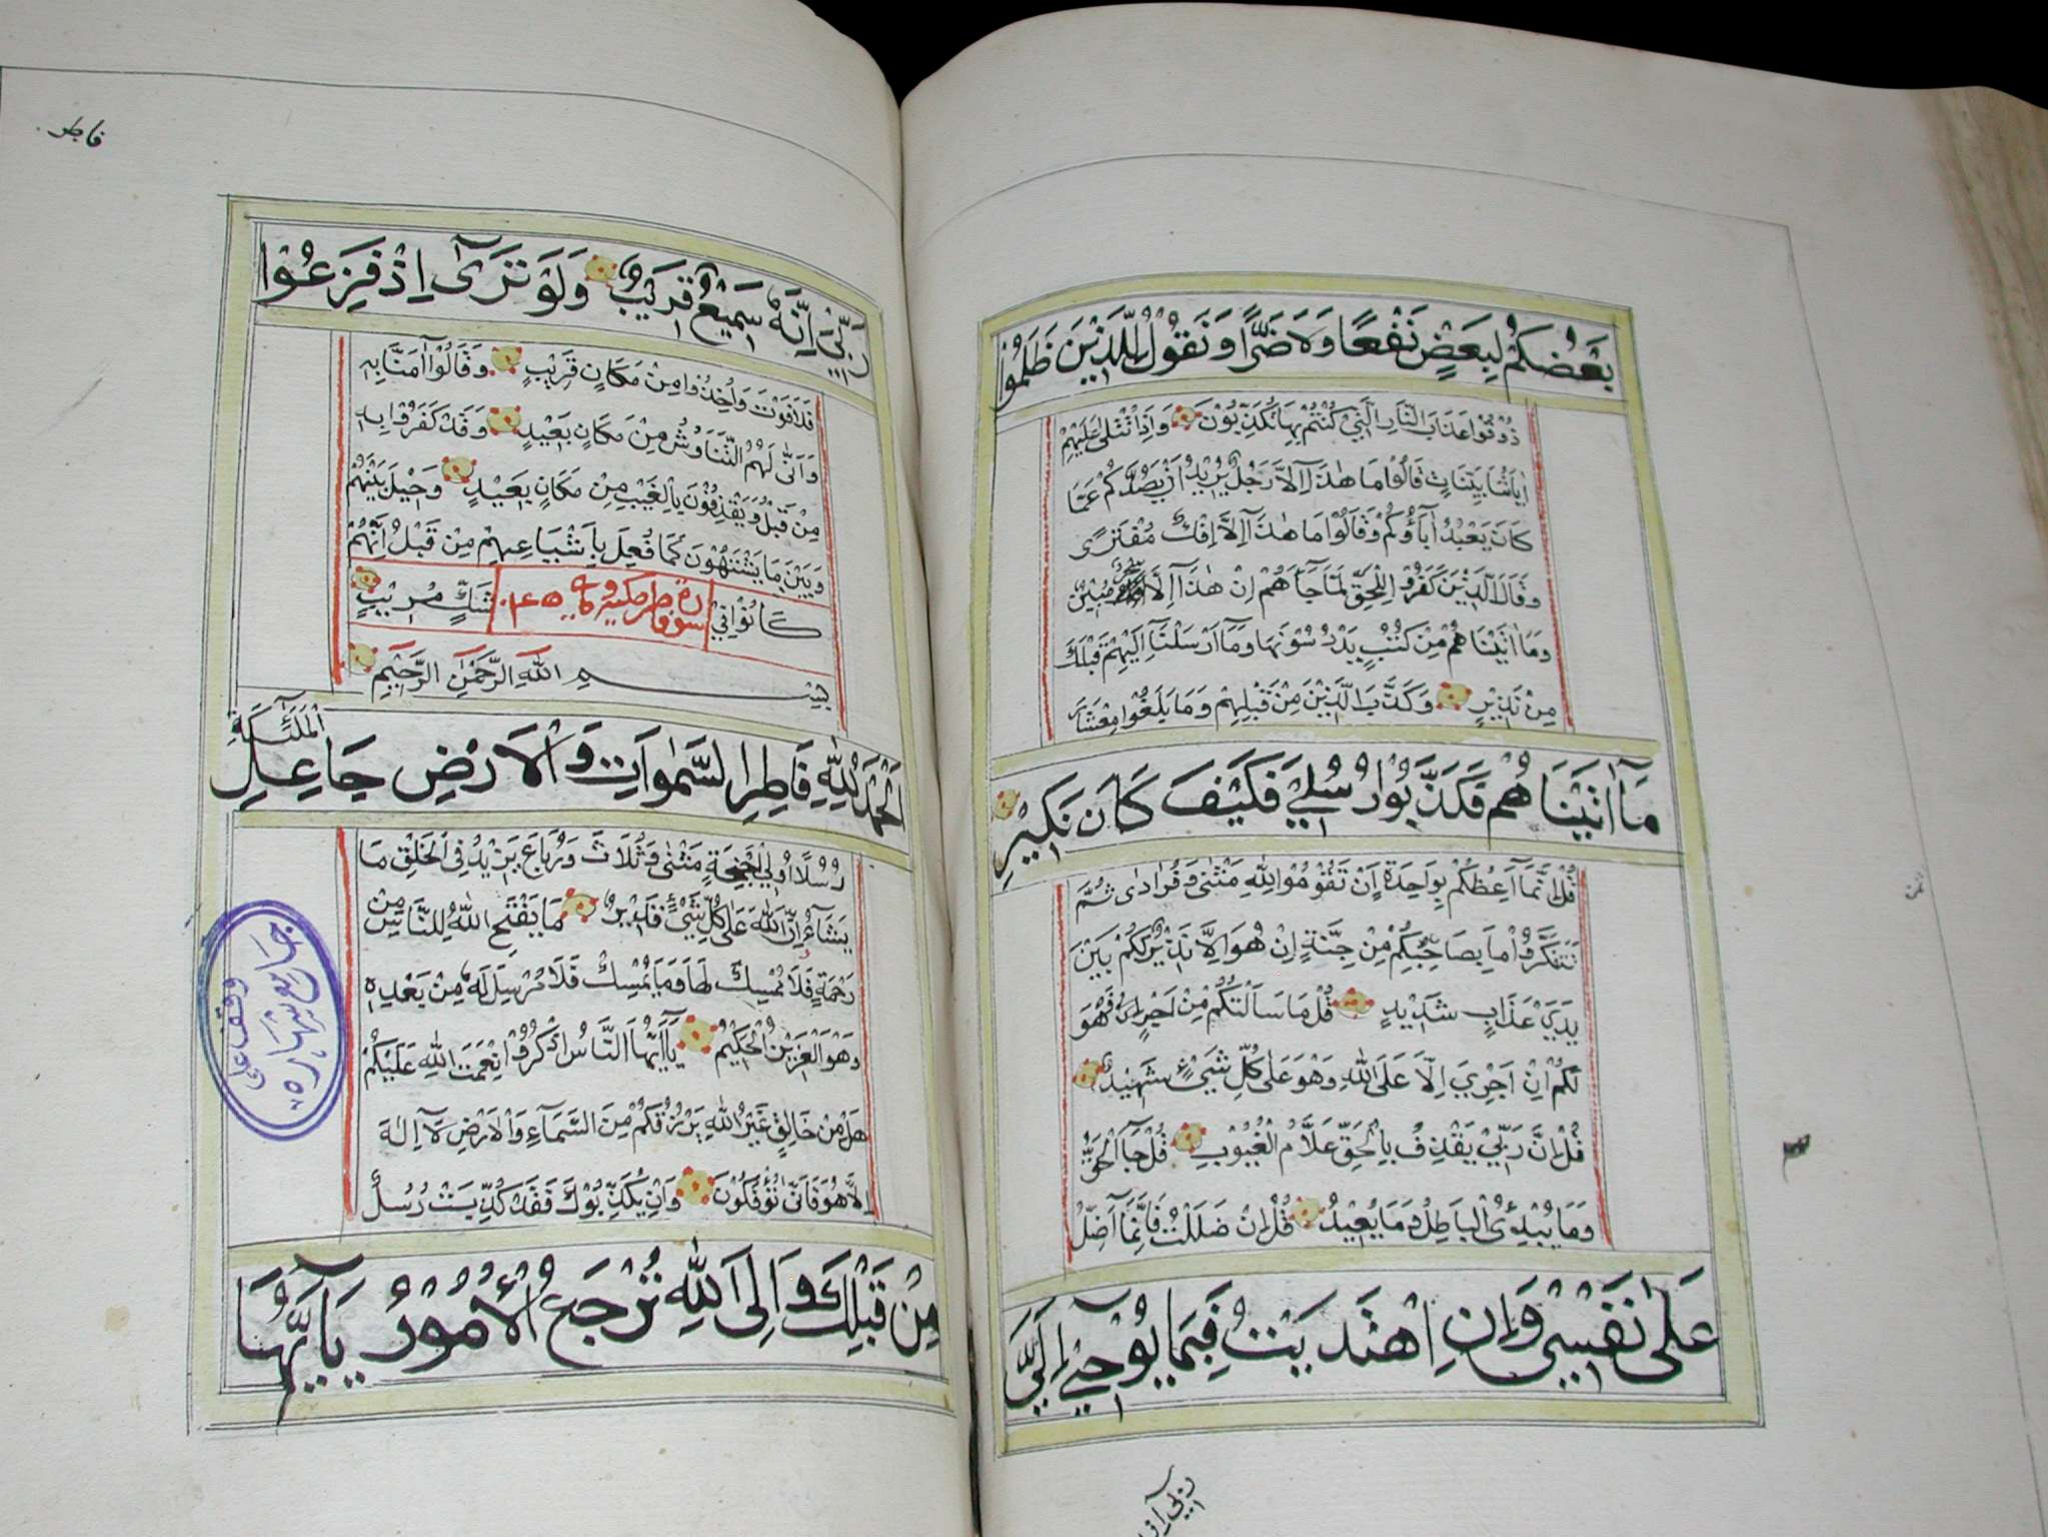 بَعْضُكُمْ لِبَعْضٍ نَفْعًا وَلَا ضَرًّا وَنَقُولُ لِلَّذِيْنَ ظَلَمُوْا
ذُوْقُوْا عَذَابَ النَّارِ الَّتِيْ كُنْتُمْ بِهَا تُكَذِّبُوْنَ وَاِذَا تُتْلٰى عَلَيْهِمْ
اٰيَاتُنَا بَيِّنَاتٍ قَالُوْا مَا هٰذَآ اِلَّا رَجُلٌ يُرِيْدُ اَنْ يَصُدَّكُمْ عَمَّا
كَانَ يَعْبُدُ اٰبَآؤُكُمْ وَقَالُوْا مَا هٰذَآ اِلَّا اِفْكٌ مُفْتَرًى
وَقَالَ الَّذِيْنَ كَفَرُوْا لِلْحَقِّ لَمَّا جَآءَهُمْ اِنْ هٰذَآ اِلَّا مُبِيْنٌ
وَمَا اٰتَيْنَاهُمْ مِنْ كُتُبٍ يَدْرُسُوْنَهَا وَمَآ اَرْسَلْنَآ اِلَيْهِمْ قَبْلَكَ
مِنْ نَذِيْرٍ وَكَذَّبَ الَّذِيْنَ مِنْ قَبْلِهِمْ وَمَا بَلَغُوْا مِعْشَارَ
مَآ اٰتَيْنَاهُمْ فَكَذَّبُوْا رُسُلِيْ فَكَيْفَ كَانَ نَكِيْرِ
قُلْ اِنَّمَآ اَعِظُكُمْ بِوَاحِدَةٍ اَنْ تَقُوْمُوْا لِلّٰهِ مَثْنٰى وَفُرَادٰى ثُمَّ
تَتَفَكَّرُوْا مَا بِصَاحِبِكُمْ مِنْ جِنَّةٍ اِنْ هُوَ اِلَّا نَذِيْرٌ لَكُمْ بَيْنَ
يَدَيْ عَذَابٍ شَدِيْدٍ قُلْ مَا سَاَلْتُكُمْ مِنْ اَجْرٍ فَهُوَ
لَكُمْ اِنْ اَجْرِيَ اِلَّا عَلَى اللّٰهِ وَهُوَ عَلٰى كُلِّ شَيْءٍ شَهِيْدٌ
قُلْ اِنَّ رَبِّيْ يَقْذِفُ بِالْحَقِّ عَلَّامُ الْغُيُوْبِ قُلْ جَآءَ الْحَقُّ
وَمَا يُبْدِئُ الْبَاطِلُ وَمَا يُعِيْدُ قُلْ اِنْ ضَلَلْتُ فَاِنَّمَآ اَضِلُّ
عَلٰى نَفْسِيْ وَاِنِ اهْتَدَيْتُ فَبِمَا يُوْحِيْ اِلَيَّ
فاطر
رَبِّيْ اِنَّهُ سَمِيْعٌ قَرِيْبٌ وَلَوْ تَرٰىٓ اِذْ فَزِعُوْا
فَلَا فَوْتَ وَاُخِذُوْا مِنْ مَكَانٍ قَرِيْبٍ وَقَالُوْآ اٰمَنَّا بِهِ
وَاَنّٰى لَهُمُ التَّنَاوُشُ مِنْ مَكَانٍ بَعِيْدٍ وَقَدْ كَفَرُوْا بِهِ
مِنْ قَبْلُ وَيَقْذِفُوْنَ بِالْغَيْبِ مِنْ مَكَانٍ بَعِيْدٍ وَحِيْلَ بَيْنَهُمْ
وَبَيْنَ مَا يَشْتَهُوْنَ كَمَا فُعِلَ بِاَشْيَاعِهِمْ مِنْ قَبْلُ اَنَّهُمْ
كَانُوْا فِيْ سورة فاطر مكية شَكٍّ مُرِيْبٍ
بِسْمِ اللّٰهِ الرَّحْمٰنِ الرَّحِيْمِ
اَلْحَمْدُ لِلّٰهِ فَاطِرِ السَّمٰوَاتِ وَالْاَرْضِ جَاعِلِ الْمَلٰٓئِكَةِ
رُسُلًا اُولِيْ اَجْنِحَةٍ مَثْنٰى وَثُلَاثَ وَرُبَاعَ يَزِيْدُ فِي الْخَلْقِ مَا
يَشَآءُ اِنَّ اللّٰهَ عَلٰى كُلِّ شَيْءٍ قَدِيْرٌ مَا يَفْتَحِ اللّٰهُ لِلنَّاسِ مِنْ
رَحْمَةٍ فَلَا مُمْسِكَ لَهَا وَمَا يُمْسِكْ فَلَا مُرْسِلَ لَهُ مِنْ بَعْدِهِ
وَهُوَ الْعَزِيْزُ الْحَكِيْمُ يَآ اَيُّهَا النَّاسُ اذْكُرُوْا نِعْمَتَ اللّٰهِ عَلَيْكُمْ
هَلْ مِنْ خَالِقٍ غَيْرُ اللّٰهِ يَرْزُقُكُمْ مِنَ السَّمَآءِ وَالْاَرْضِ لَآ اِلٰهَ
اِلَّا هُوَ فَاَنّٰى تُؤْفَكُوْنَ وَاِنْ يُكَذِّبُوْكَ فَقَدْ كُذِّبَتْ رُسُلٌ
مِنْ قَبْلِكَ وَاِلَى اللّٰهِ تُرْجَعُ الْاُمُوْرُ يَآ اَيُّهَا
وقف على
جامع شهاره